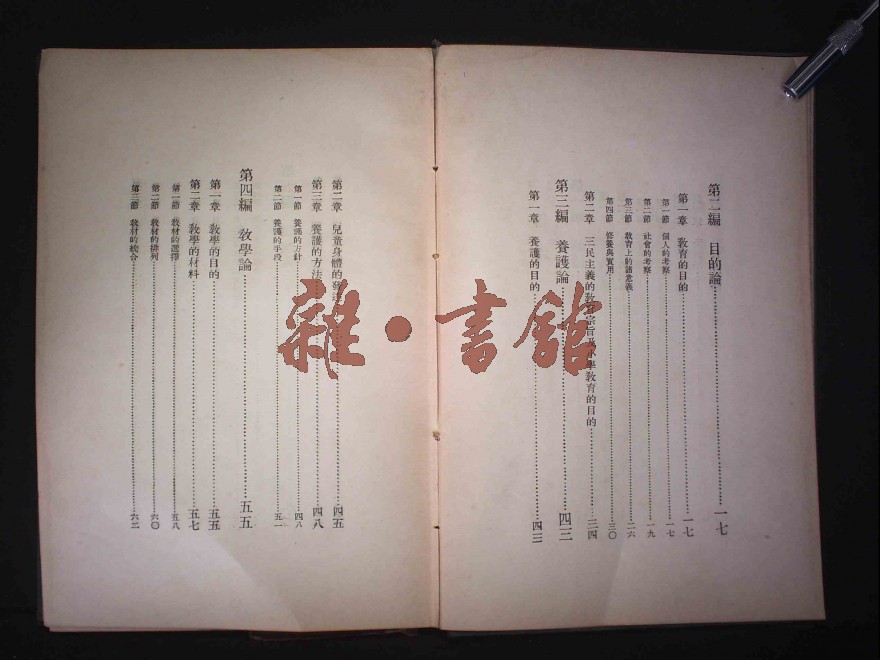 第二編 目的論 一七
第一章 教育的目的 一七
第一節 個人的考察 一七
第二節 社會的考察 一九
第三節 教育上的諸意義 二六
第四節 修養與實用 三〇
第二章 三民主義的教育宗旨及小學教育的目的 三四
第三編 養護論 四三
第一章 養護的目的 四三
第二章 兒童身體的發 四五
第三章 養護的方法 四八
第一節 養護的方針 四八
第二節 養護的手段 五一
第四編 教學論 五五
第一章 教學的目的 五五
第二章 教學的材料 五七
第一節 教材的選擇 五八
第二節 教材的排列 六〇
第三節 教材的統合 六二
雜·書館